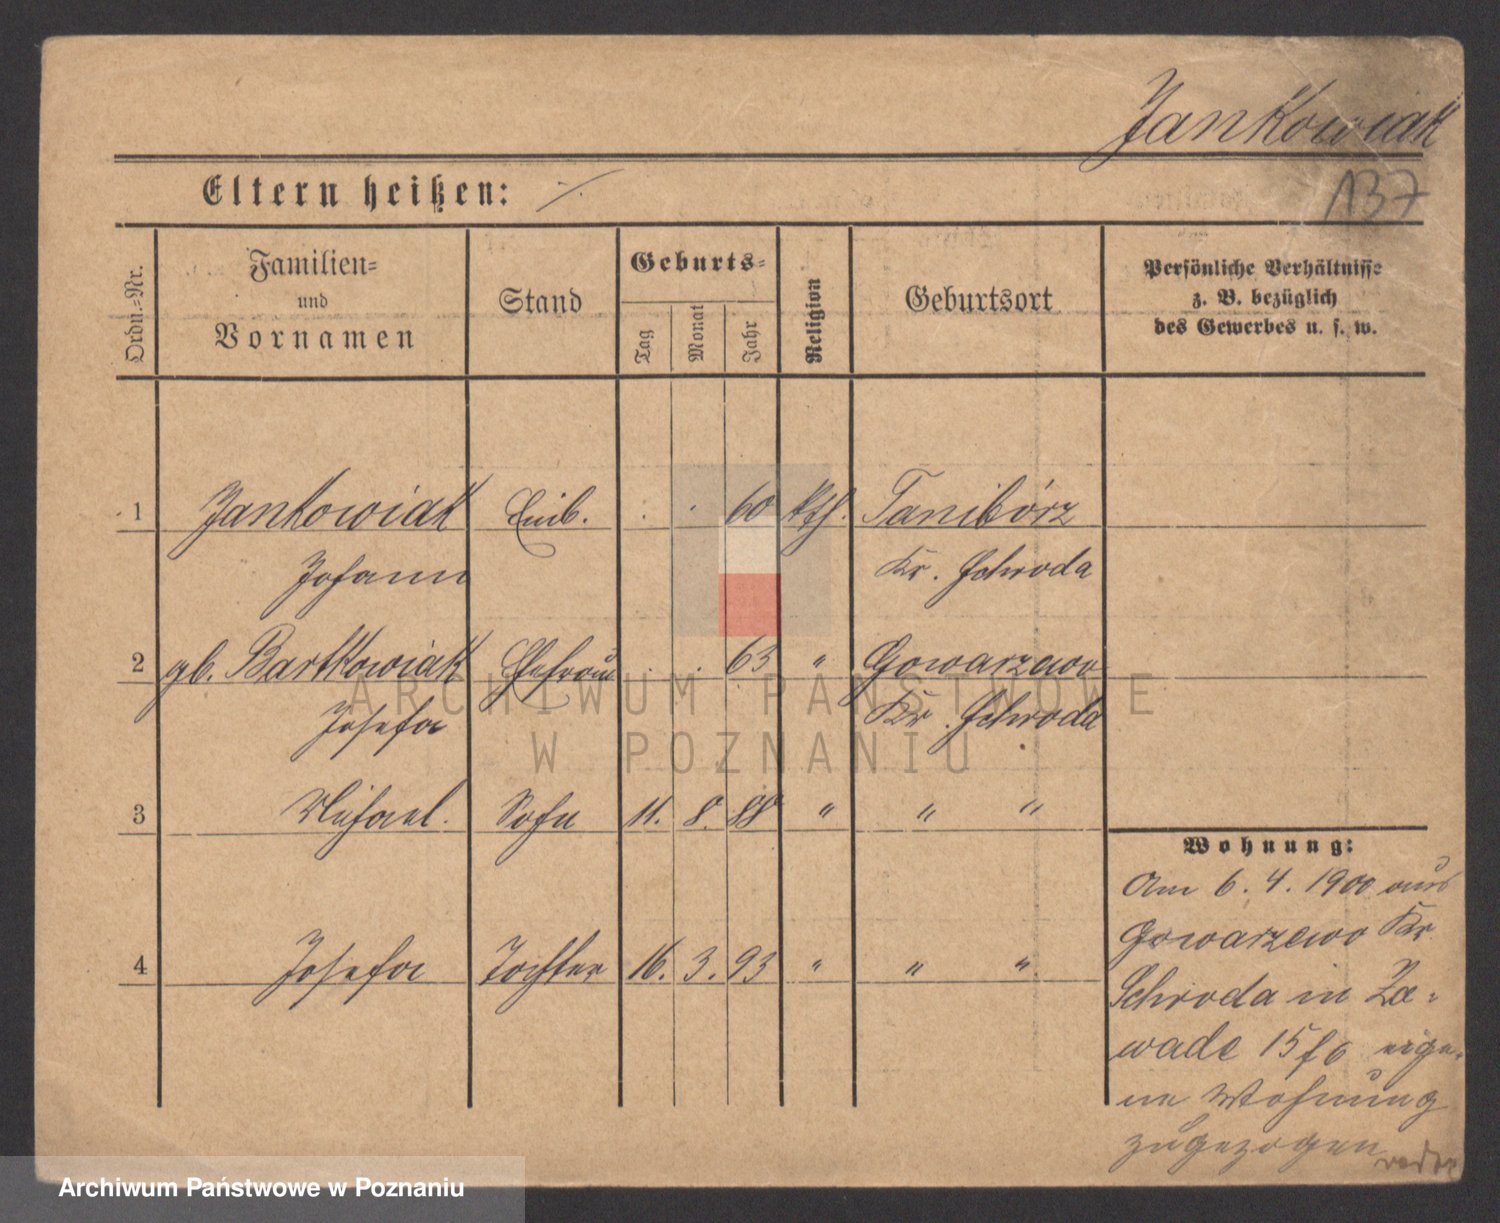 Jankowiak
Eltern heißen: ·/·
137
Ordn.-Nr.
Familien-
und
Vornamen
Stand
Geburts-
Tag
Monat
Jahr
Religion
Geburtsort
Persönliche Verhältnisse
z. B. bezüglich
des Gewerbes u. s. w.
1 Jankowiak . . 60 kth. Tanibórz
Johann Kr. Schroda
2 gb. Bartkowiak Ehefrau . . 63 " Gowarzewo
Josefa Kr. Schroda
3 Michael. Sohn 11. 8. 88 " " "
4 Josefa Tochter 16. 3. 93 " " "
Wohnung:
Am 6. 4. 1900 aus
Gowarzewo Kr
Schroda in Za-
wade 15 eige-
ne Wohnung
zugezogen
ARCHIWUM PAŃSTWOWE
W POZNANIU
Archiwum Państwowe w Poznaniu